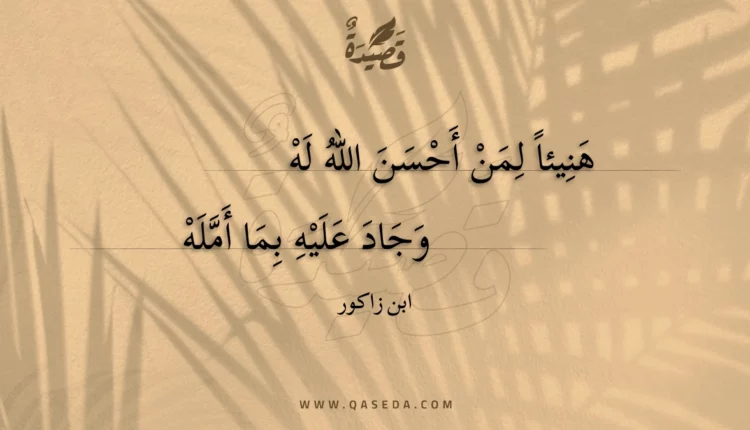 قَصِيْدَةٌ
هَنِيئاً لِمَنْ أَحْسَنَ اللهُ لَهْ
وَجَادَ عَلَيْهِ بِمَا أَمَّلَهْ
ابن زاكور
WWW.QASEDA.COM